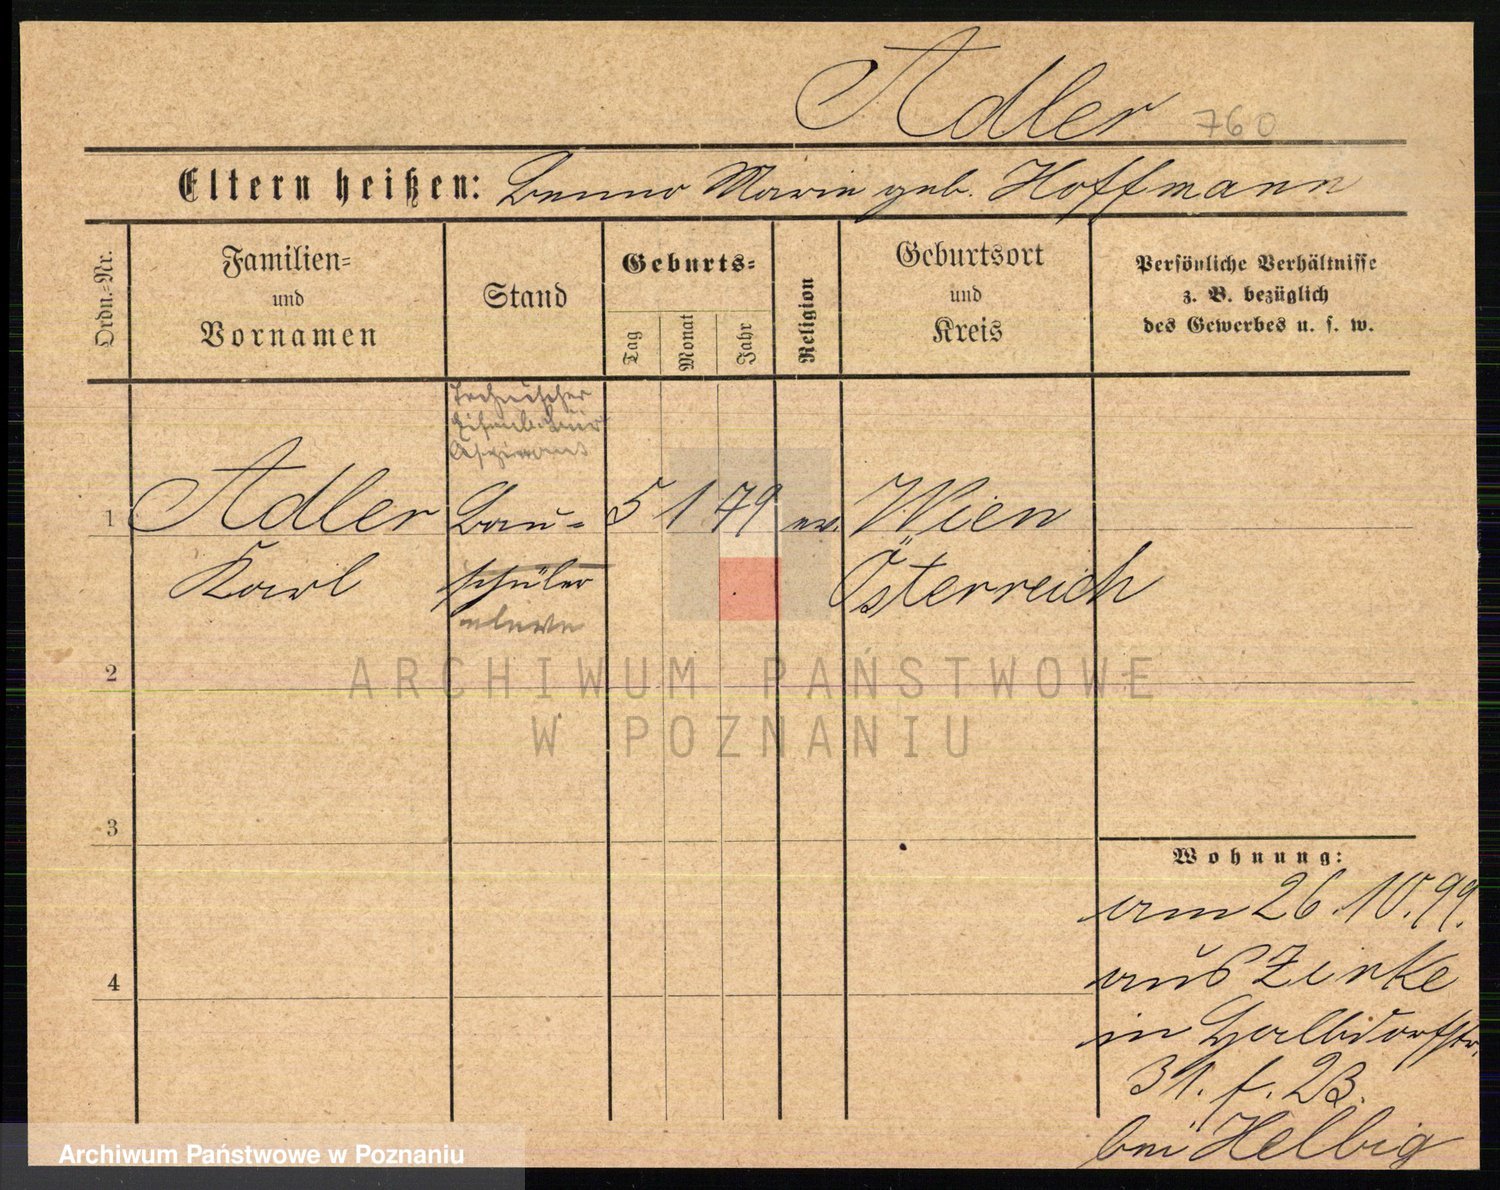 Adler 760
Eltern heißen: Benno Marie geb. Hoffmann
Ordn.-Nr.
Familien=
und
Vornamen
Stand
Geburts=
Tag
Monat
Jahr
Religion
Geburtsort
und
Kreis
Persönliche Verhältnisse
z. B. bezüglich
des Gewerbes u. s. w.
Technischer
Eisenb. Bür
Aspirant
1 Adler Bau= 5 1 79 ev. Wien
Karl schüler Österreich
eleve
2
ARCHIWUM PAŃSTWOWE
W POZNANIU
3
Wohnung:
am 26.10.99.
aus Zirke
in Halbdorfstr.
31. f. 23.
bei Helbig
4
Archiwum Państwowe w Poznaniu